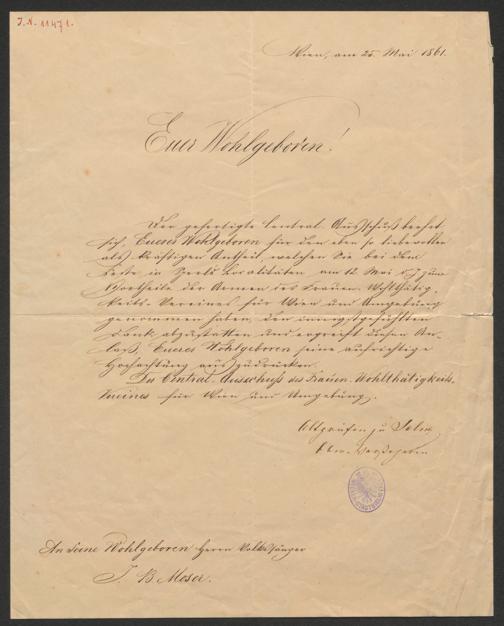 J.N. 11471.
Wien, am 25. Mai 1861.
Euer Wohlgeboren!
Der gefertigte Central-Ausschuß beehrt
sich, Euer Wohlgeboren für den eben so liebevollen
als kräftigen Antheil, welchen Sie bei dem
Feste in Sperls Localitäten am 12 Mai d. J. zum
Vortheile der Armen des Frauen-Wohlthätig-
keits-Vereines für Wien und Umgebung
genommen haben, den innigstgefühlten
Dank abzustatten und ergreift diesen An-
laß, Euer Wohlgeboren seine aufrichtige
Hochachtung auszudrücken.
Der Central-Ausschuß des Frauen-Wohlthätigkeits-
Vereines für Wien und Umgebung.
Altgräfin zu Salm
Vorsteherin
An Seine Wohlgeboren Herrn Volkssänger
J. B. Moser.